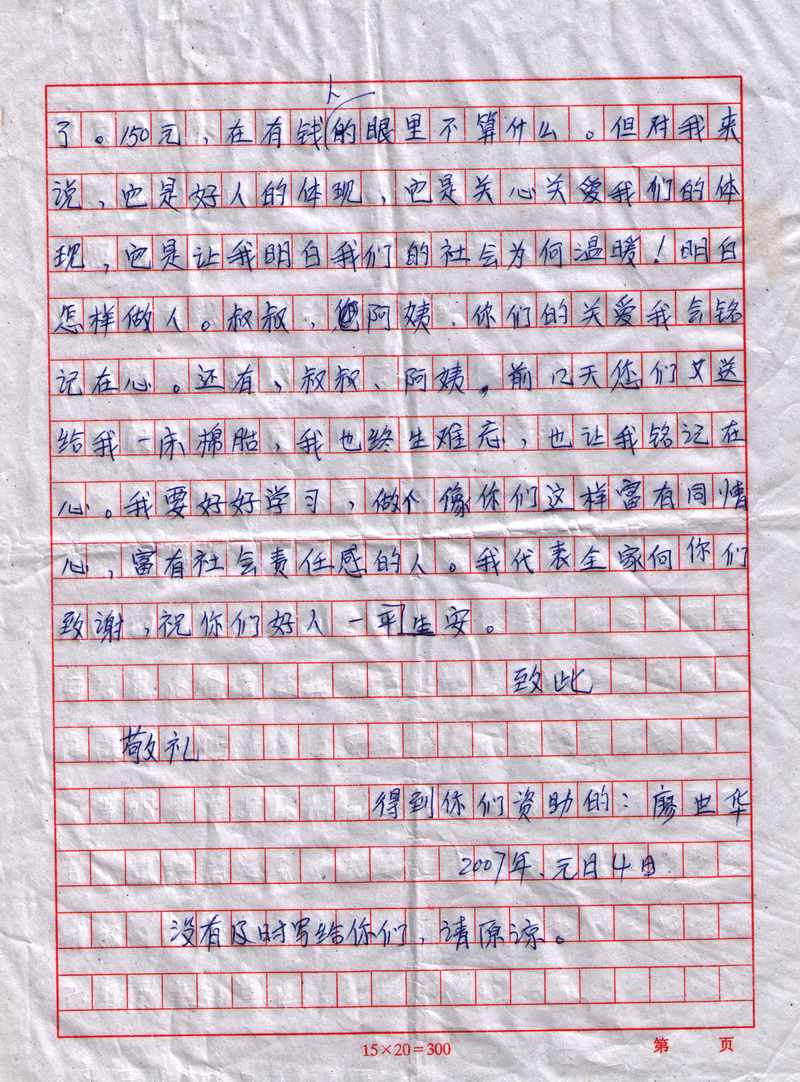 了。150元，在有钱人的眼里不算什么。但对我来
说，它是好人的体现，它是关心关爱我们的体
现，它是让我明白我们的社会为何温暖！明白
怎样做人。叔叔，阿姨．你们的关爱我会铭
记在心。还有，叔叔、阿姨．前几天您们又送
给我一床棉，我也终生难忘，也让我铭记在
心。我要好好学习，做个像你们这样富有同情
心，富有社会责任感的人。我代表全家向你们
致谢，祝你们好人一平生安。
致此
敬礼
得到你们资助的：廖世华
2007年、元日4日
没有及时写给你们，请原谅。
15×20=300
第 页